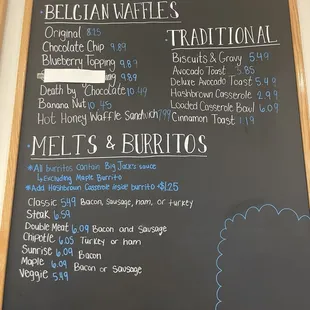 BELGIAN WAFFLES
Original 8.15
Chocolate Chip 9.89
Blueberry Topping 9.89
9.89
Death by "Chocolate 10.49
Banana Nut 10.45
Hot Honey Waffle Sandwich 7.99
TRADITIONAL
Biscuits & Gravy 5.49
Avocado Toast 5.85
Deluxe Avocado Toast 5.48
Hashbrown Casserole 2.99
Loaded Casserole Bowl 6.09
Cinnamon Toast 1.19
MELTS & BURRITOS
*All burritos contain Big Jack's sauce
↳Excluding Maple Burrito
*Add Hashbrown Casserole inside burrito +$1.25
Classic 5.49 Bacon, Sausage, ham, or turkey
Steak 6.59
Double Meat 6.09 Bacon and Sausage
Chipotle 6.05 Turkey or ham
Sunrise 6.09 Bacon
Maple 6.09 Bacon or Sausage
Veggie 5.49